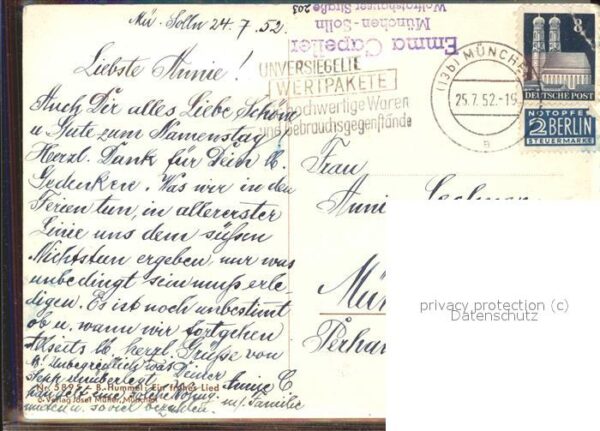 Mü.-Solln 24.7.52.
Liebste Annie!
Auch Dir alles Liebe, Schöne
u. Gute zum Namenstag/
Herzl. Dank für Dein lb.
Gedenken. Was wir in den
Ferien tun, in allererster
Linie uns dem süßen
Nichtstun ergeben, nur was
unbedingt sein muß erle-
digen. Es ist noch unbestimmt
ob u. wann wir fortgehen
Allseits lb. herzl. Grüße von
Deiner
Annie C
m/ Familie
Unbegreiflich was
Sepp
u. soviel bezahlen
Nr. 5895 - B. Hummel: Ein frohes Lied
© Verlag Josef Müller, München
Emma Capeller
München - Solln
Wolfratshauser Straße 203
UNVERSIEGELTE
WERTPAKETE
hochwertige Waren
und Gebrauchsgegenstände
(13b) MÜNCHEN
25.7.52.-19
a
8
DEUTSCHE POST
NOTOPFER
2 BERLIN
STEUERMARKE
Frau
Annie
Mün
privacy protection (c)
Datenschutz